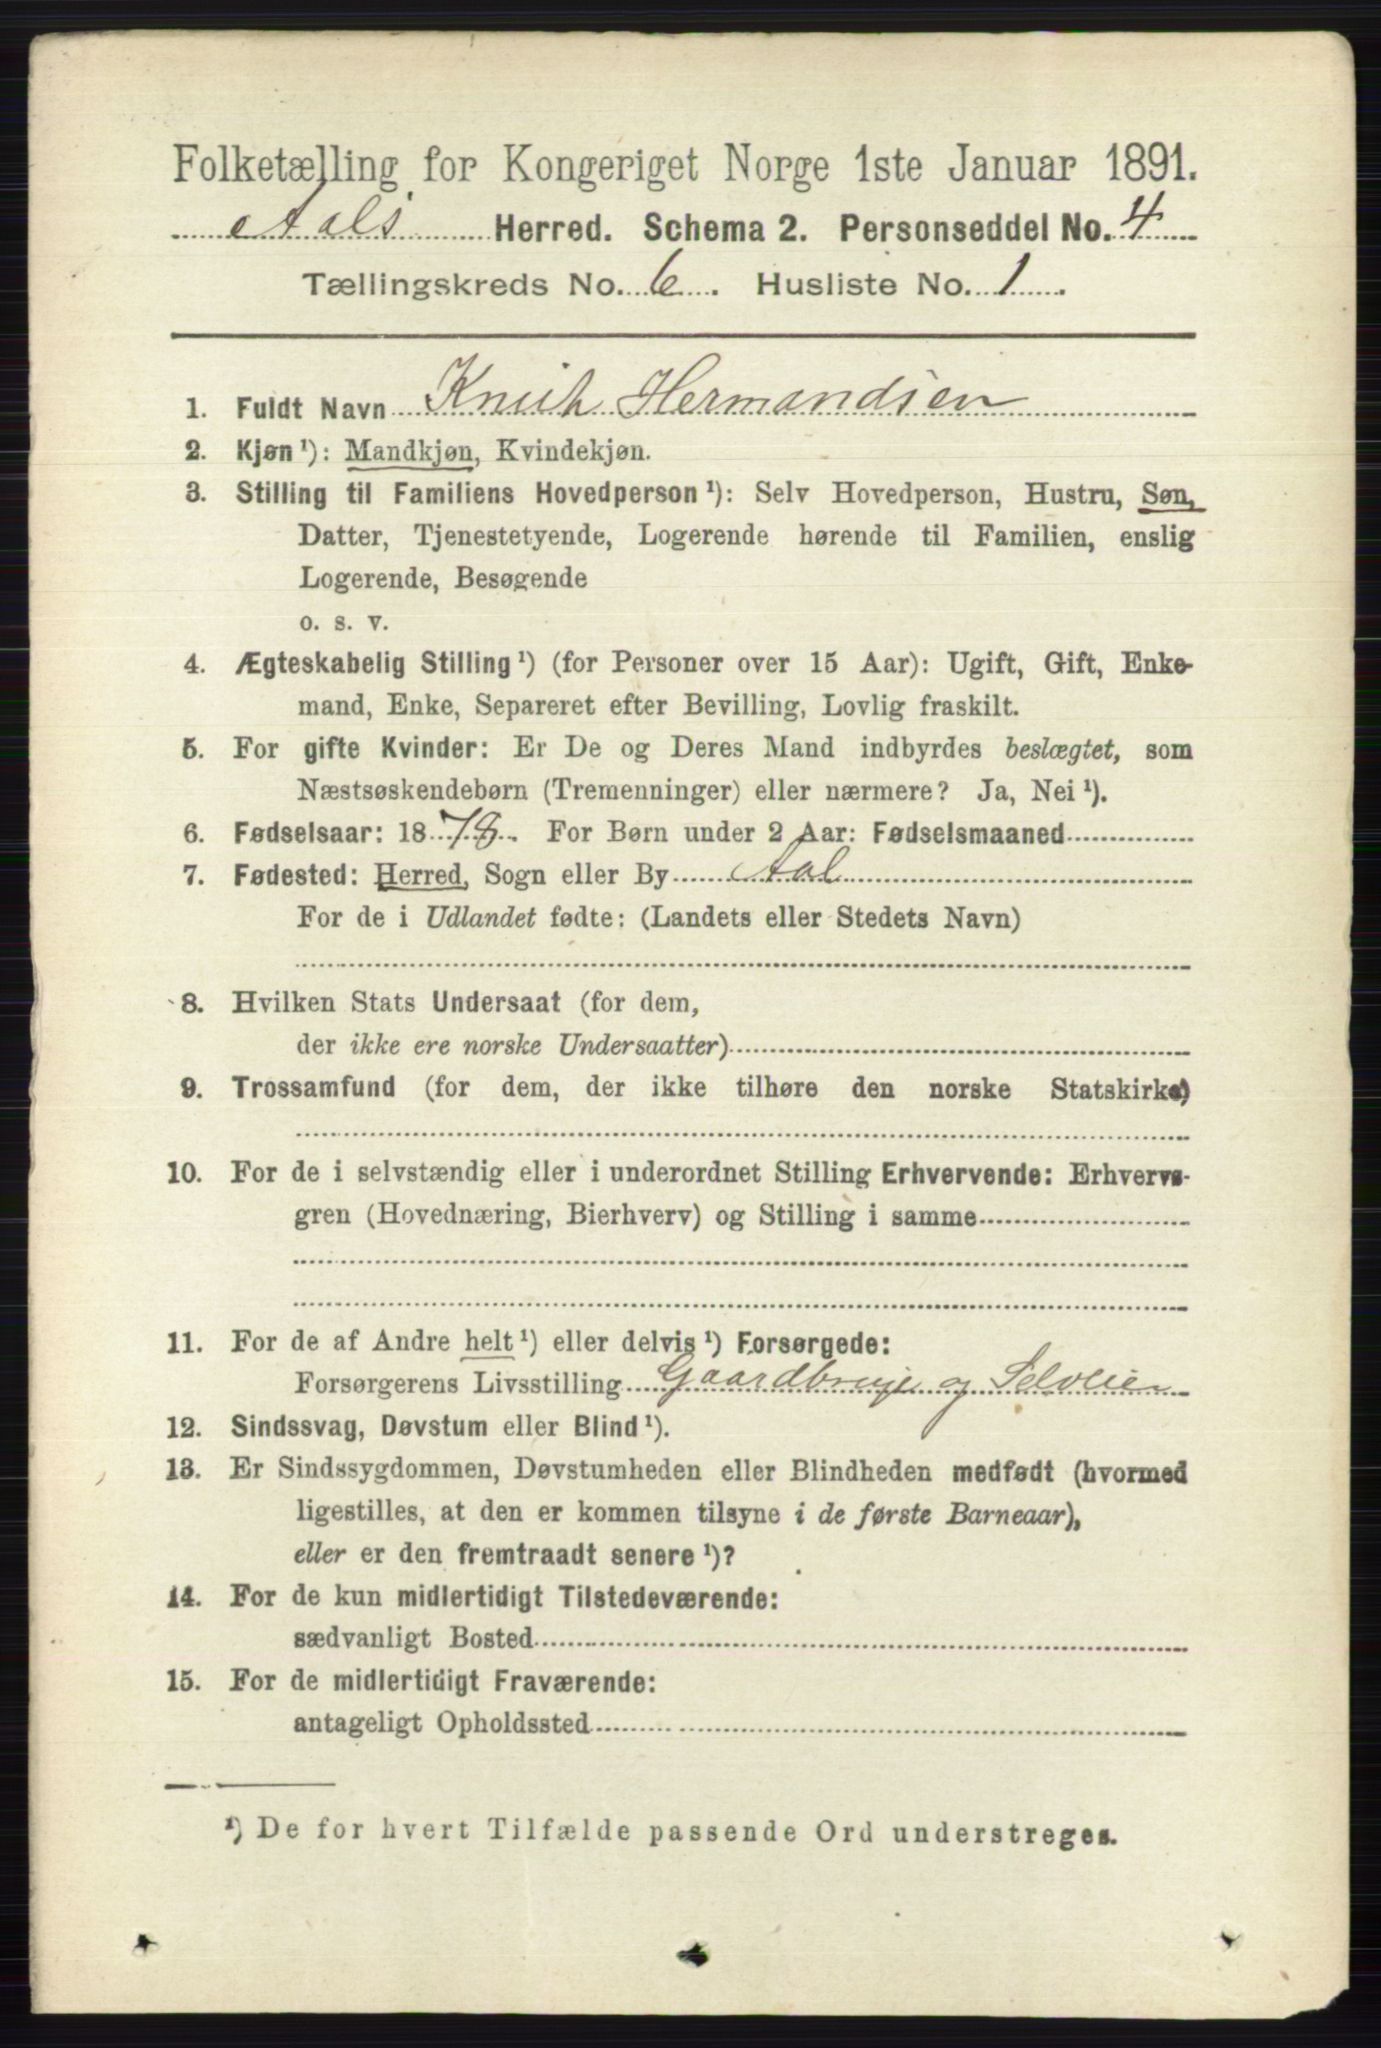 Folketælling for Kongeriget Norge 1ste Januar 1891.
Aals Herred. Schema 2. Personseddel No. 4
Tællingskreds No. 6. Husliste No. 1.
1. Fuldt Navn Knut Hermandsen
2. Kjøn ¹): Mandkjøn, Kvindekjøn.
3. Stilling til Familiens Hovedperson ¹): Selv Hovedperson, Hustru, Søn,
Datter, Tjenestetyende, Logerende hørende til Familien, enslig
Logerende, Besøgende
o. s. v.
4. Ægteskabelig Stilling ¹) (for Personer over 15 Aar): Ugift, Gift, Enke-
mand, Enke, Separeret efter Bevilling, Lovlig fraskilt.
5. For gifte Kvinder: Er De og Deres Mand indbyrdes beslægtet, som
Næstsøskendebørn (Tremenninger) eller nærmere? Ja, Nei ¹).
6. Fødselsaar: 1878. For Børn under 2 Aar: Fødselsmaaned
7. Fødested: Herred, Sogn eller By Aal
For de i Udlandet fødte: (Landets eller Stedets Navn)
8. Hvilken Stats Undersaat (for dem,
der ikke ere norske Undersaatter)
9. Trossamfund (for dem, der ikke tilhøre den norske Statskirke)
10. For de i selvstændig eller i underordnet Stilling Erhvervende: Erhvervs-
gren (Hovednæring, Bierhverv) og Stilling i samme
11. For de af Andre helt ¹) eller delvis ¹) Forsørgede:
Forsørgerens Livsstilling Gaardbruge og Selveier
12. Sindssvag, Døvstum eller Blind ¹).
13. Er Sindssygdommen, Døvstumheden eller Blindheden medfødt (hvormed
ligestilles, at den er kommen tilsyne i de første Barneaar),
eller er den fremtraadt senere ¹)?
14. For de kun midlertidigt Tilstedeværende:
sædvanligt Bosted
15. For de midlertidigt Fraværende:
antageligt Opholdssted
¹) De for hvert Tilfælde passende Ord understreges.